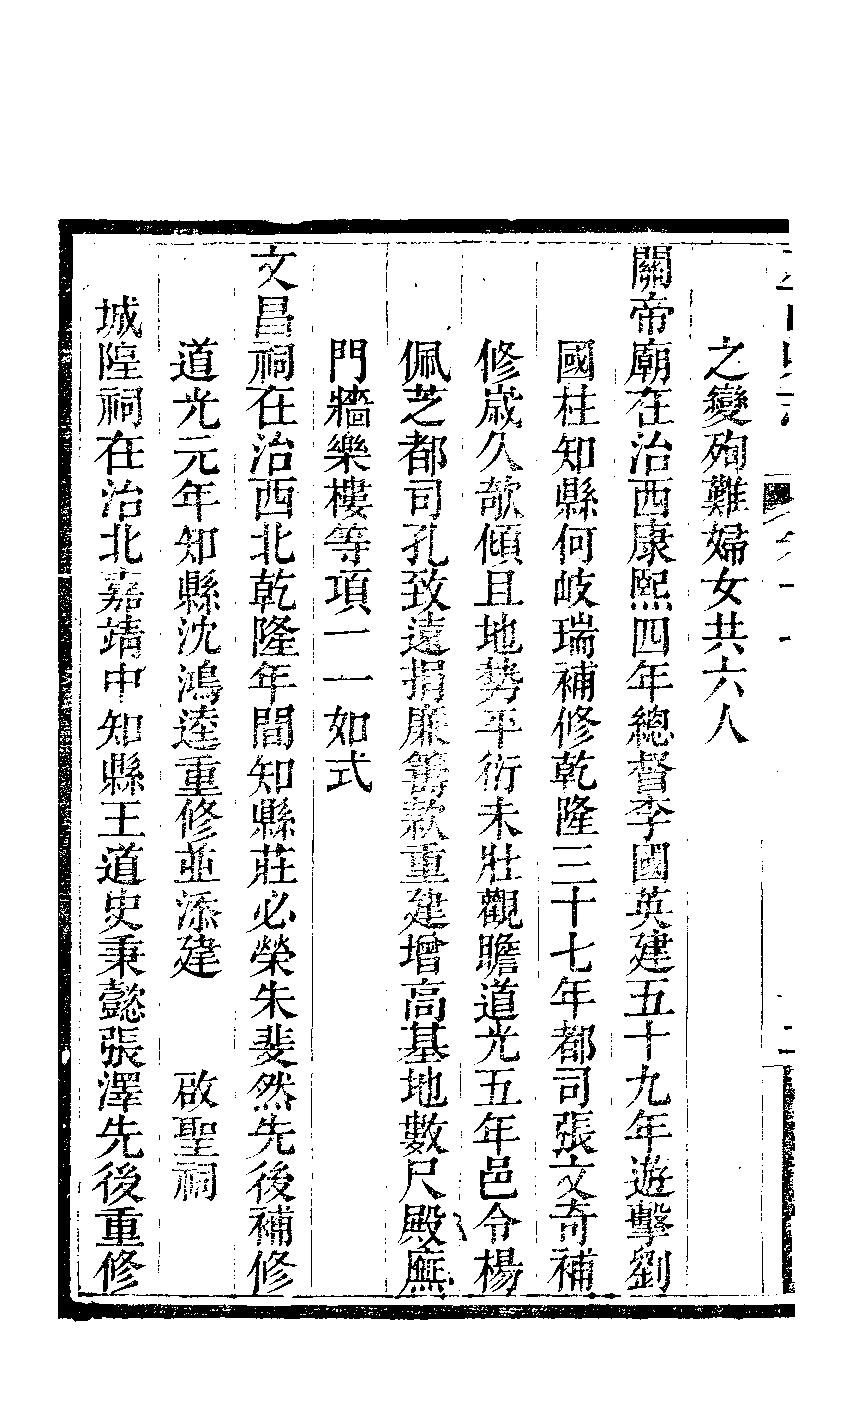 之變殉難婦女共六人
關帝廟在治西康熙四年總督李國英建五十九年遊擊劉
國柱知縣何岐瑞補修乾隆三十七年都司張文奇補
修歲久欹傾且地勢平衍未壯觀瞻道光五年邑令楊
佩芝都司孔致遠捐廉籌款重建增高基地數尺殿廡
門牆樂樓等項一一如式
文昌祠在治西北乾隆年間知縣莊必榮朱斐然先後補修
道光元年知縣沈鴻逵重修並添建 啟聖祠
城隍祠在治北嘉靖中知縣王道史秉懿張澤先後重修